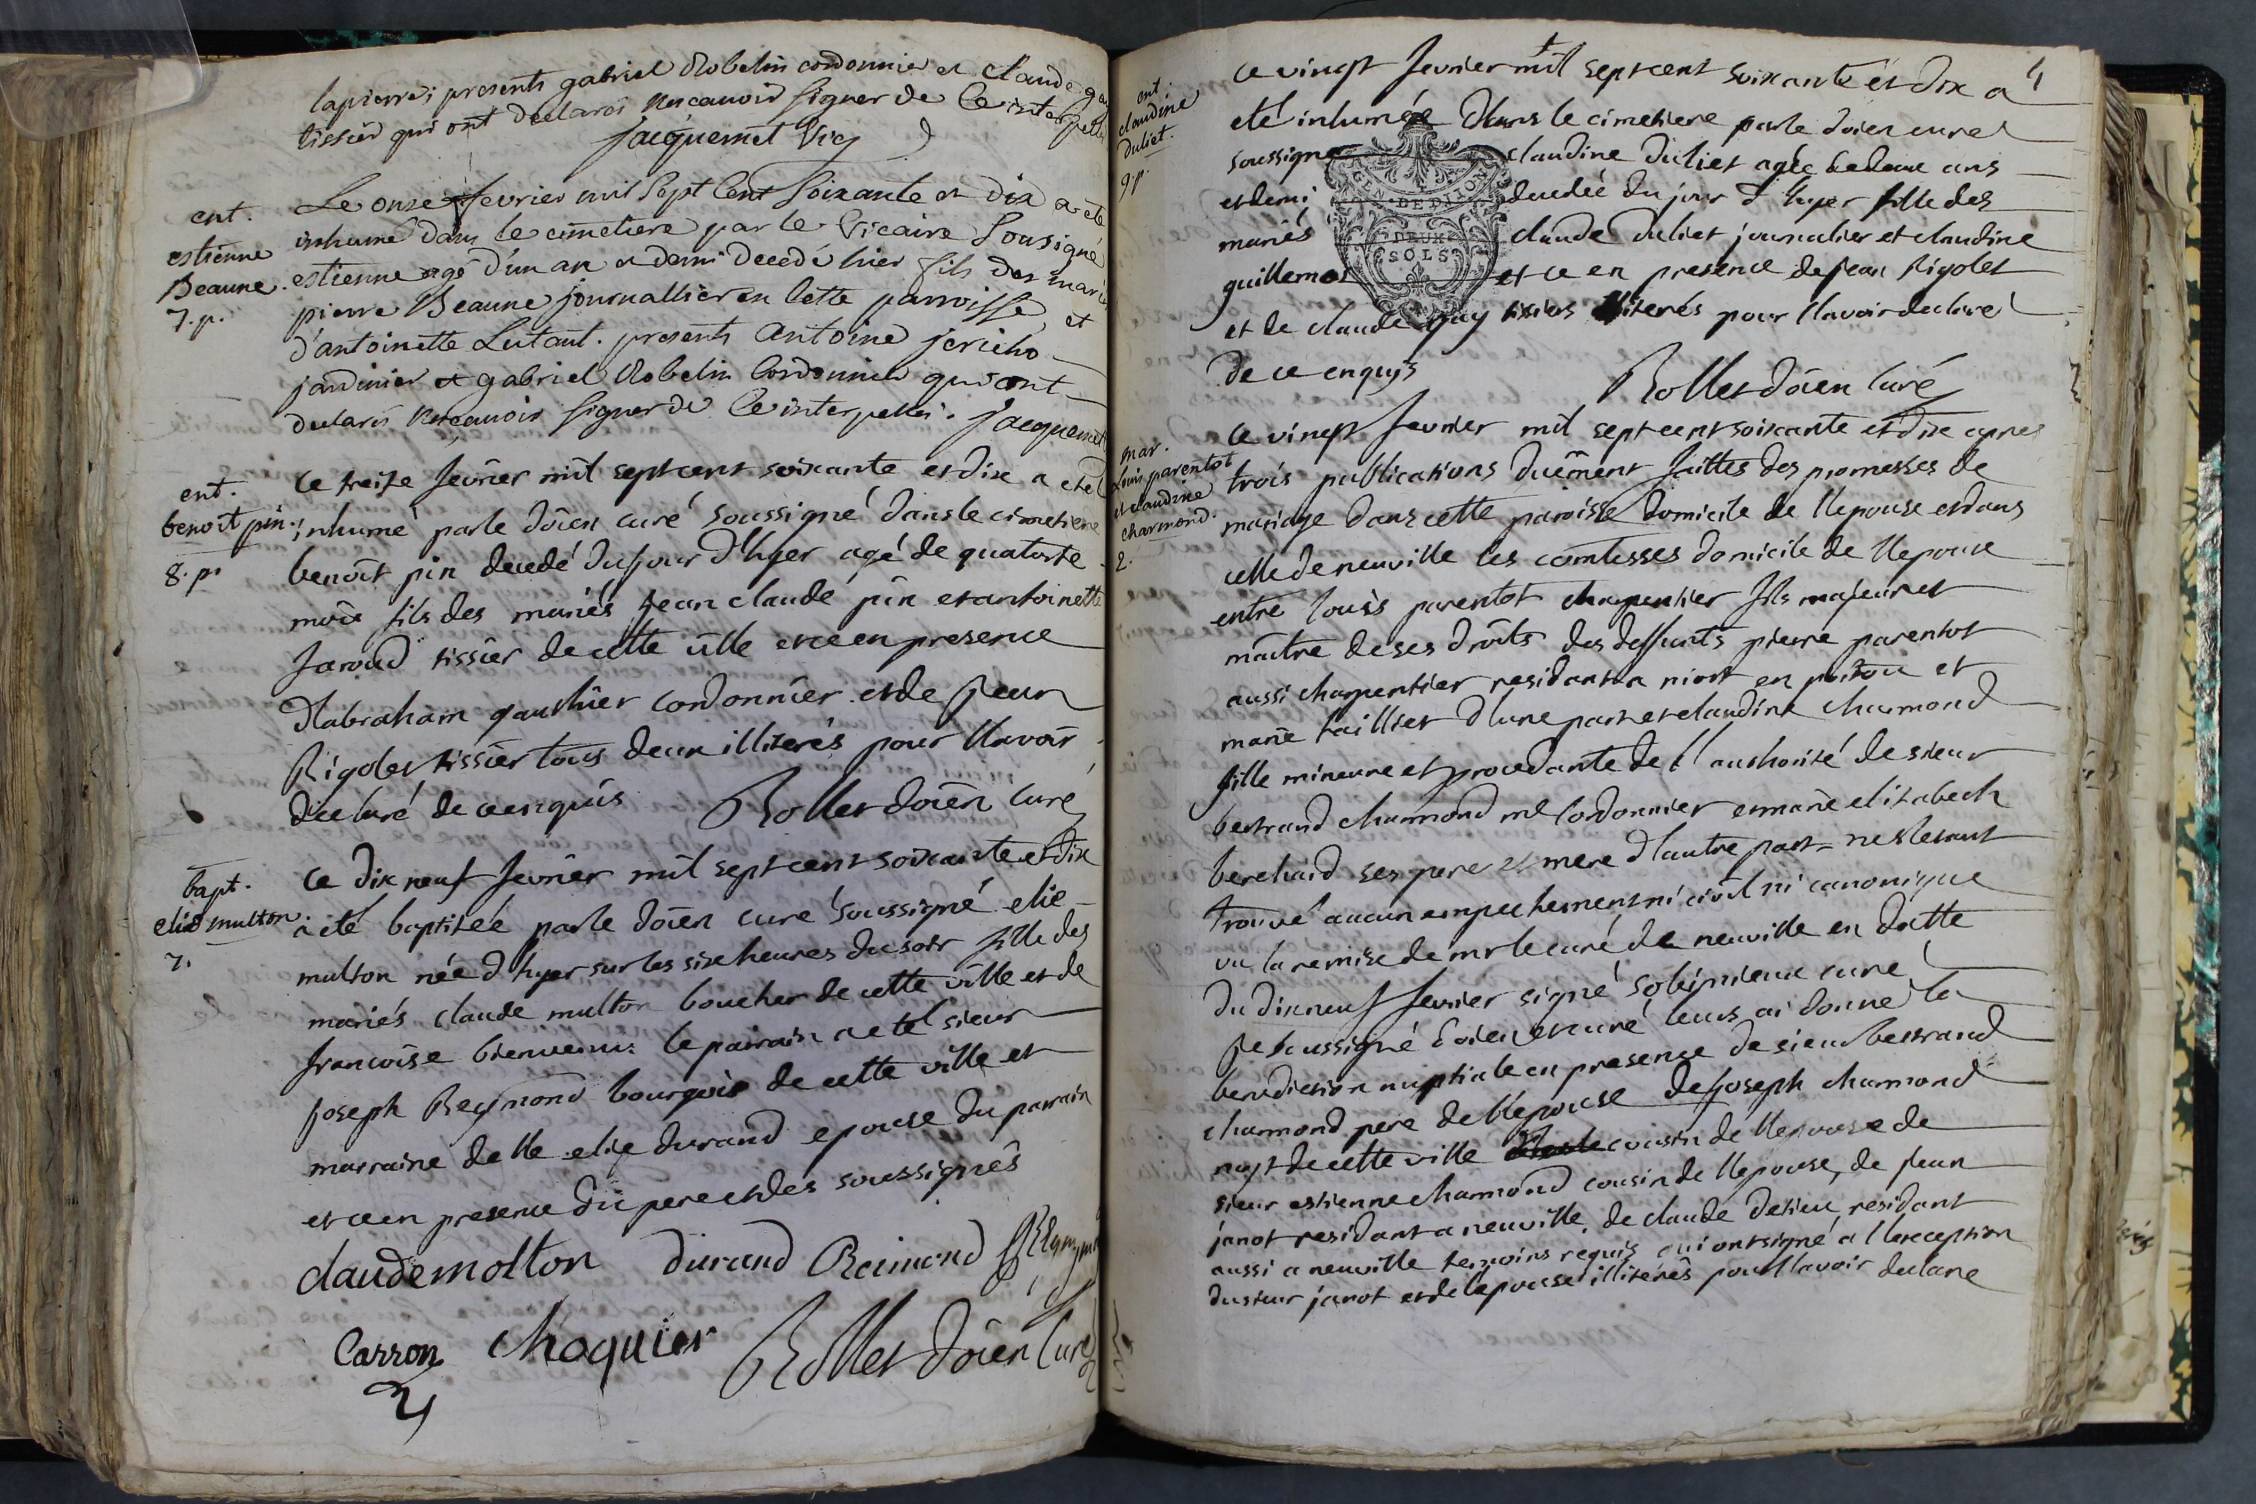 lapierre; presents gabriel Robelin cordonnier et claude
tissier qui ont declarés ne scavoir signer de ce interpellés
jacquemet vic
ent.
estienne
Beaune.
7. p.
Le onze fevrier mil sept cent soixante et dix a été
inhumé dans le cimetiere par le vicaire sousigné
estienne agé d'un an et demi decedé hier fils des mariés
pierre Beaune journallier en cette parroisse et
d'antoinette Lutaut. presents antoine jericho
jardinier et gabriel Robelin cordonnier qui ont
declarés ne scavoir signer de ce interpellés. jacquemet
ent.
benoît pin.
8. p.
le treize fevrier mil sept cent soixante et dix a eté
inhumé par le doïen curé soussigné dans le cimetiere
benoît pin decedé du jour d'hyer agé de quatorze
mois fils des mariés jean claude pin et antoinette
Jaroud tissier de cette ville et ce en presence
d'abraham gauthier cordonnier et de jean
Rigolet tissier tous deux illiterés pour l'avoir
declaré de ce enquis Rollet doïen curé
bapt.
elie multon.
7.
le dix neuf fevrier mil sept cent soixante et dix
a eté baptisée par le doïen curé soussigné elie
multon née d'hyer sur les six heures du soir fille des
mariés claude multon boucher de cette ville et de
francoise bienvenue le parrain a eté sieur
joseph Reymond bourgois de cette ville et
marraine delle elie durand epouse du parrain
et ce en presence du pere et des soussignés
claude molton durand Reimond
Carron Choquier Rollet doïen Curé
4
ent.
claudine
duliet.
9. p.
le vingt fevrier mil sept cent soixante et dix a
eté inhumée dans le cimetiere par le doïen curé
soussigné claudine duliet agée de deux ans
et demi decedée du jour d'hyer fille des
mariés claude duliet journalier et claudine
guillemot et ce en presence de jean Rigolet
et de claude guy tissiers illiterés pour l'avoir declaré
de ce enquis
Rollet doïen Curé
GEN. DE DIJON
DEUX
SOLS
mar.
Louis parentot
et claudine
charmond.
2.
le vingt fevrier mil sept cent soixante et dix apres
trois publications duëment faittes des promesses de
mariage dans cette paroisse domicile de l'epouse et dans
celle de neuville les comtesses domicile de l'epoux
entre louis parentot charpentier fils majeur et
maître de ses droits des deffunts pierre parentot
aussi charpentier residant a niort en poitou et
marie taillier d'une part et claudine charmond
fille mineure et procedante de l'authorité de sieur
bertrand charmond me cordonnier et marie elizabeth
berchaid ses pere et mere d'autre part = ne s'etant
trouvé aucun empechement ni civil ni canonique
vu la remise de mr le curé de neuville en datte
du dixneuf fevrier signé curé
je soussigné doïen et curé leurs ai donné la
benediction nuptiale en presence de sieur bertrand
charmond pere de l'epouse de joseph charmond
de cette ville cousin de l'epouse de
sieur estienne charmond cousin de l'epouse, de jean
janot residant a neuville, de claude detieu residant
aussi a neuville temoins requis qui ont signé a l'exception
du sieur janot et de l'epouse illiterés pour l'avoir declaré